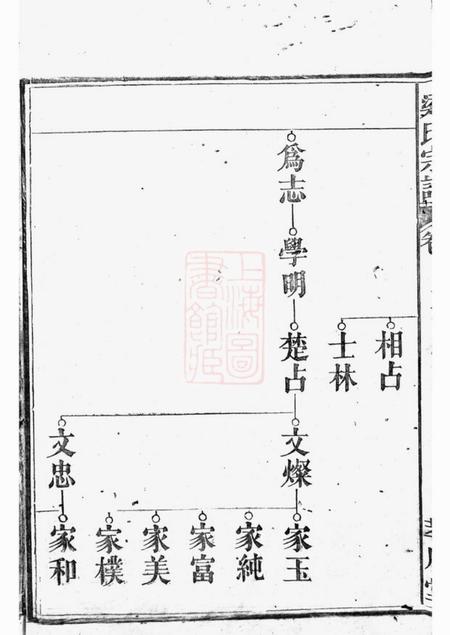 梁氏宗譜
卷
相占
士林
爲志
學明
楚占
文燦
家玉
家純
家富
家美
家樸
文忠
家和
上海圖
書館藏